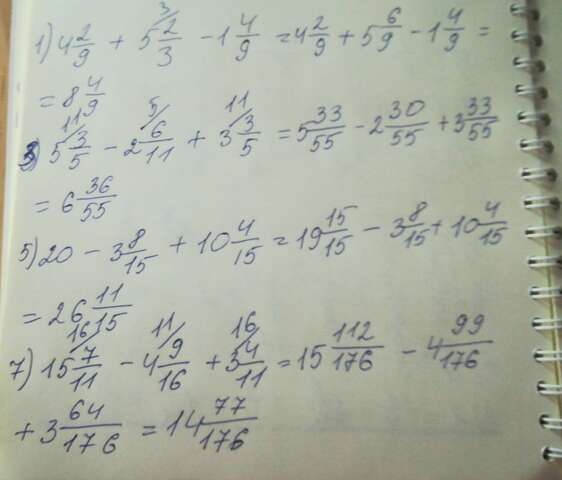 1) 4 2/9 + 5 2/3 - 1 4/9 = 4 2/9 + 5 6/9 - 1 4/9 =
= 8 4/9
3) 5 3/5 - 2 6/11 + 3 3/5 = 5 33/55 - 2 30/55 + 3 33/55
= 6 36/55
5) 20 - 3 8/15 + 10 4/15 = 19 15/15 - 3 8/15 + 10 4/15
= 26 11/15
7) 15 7/11 - 4 9/16 + 3 4/11 = 15 112/176 - 4 99/176
+ 3 64/176 = 14 77/176